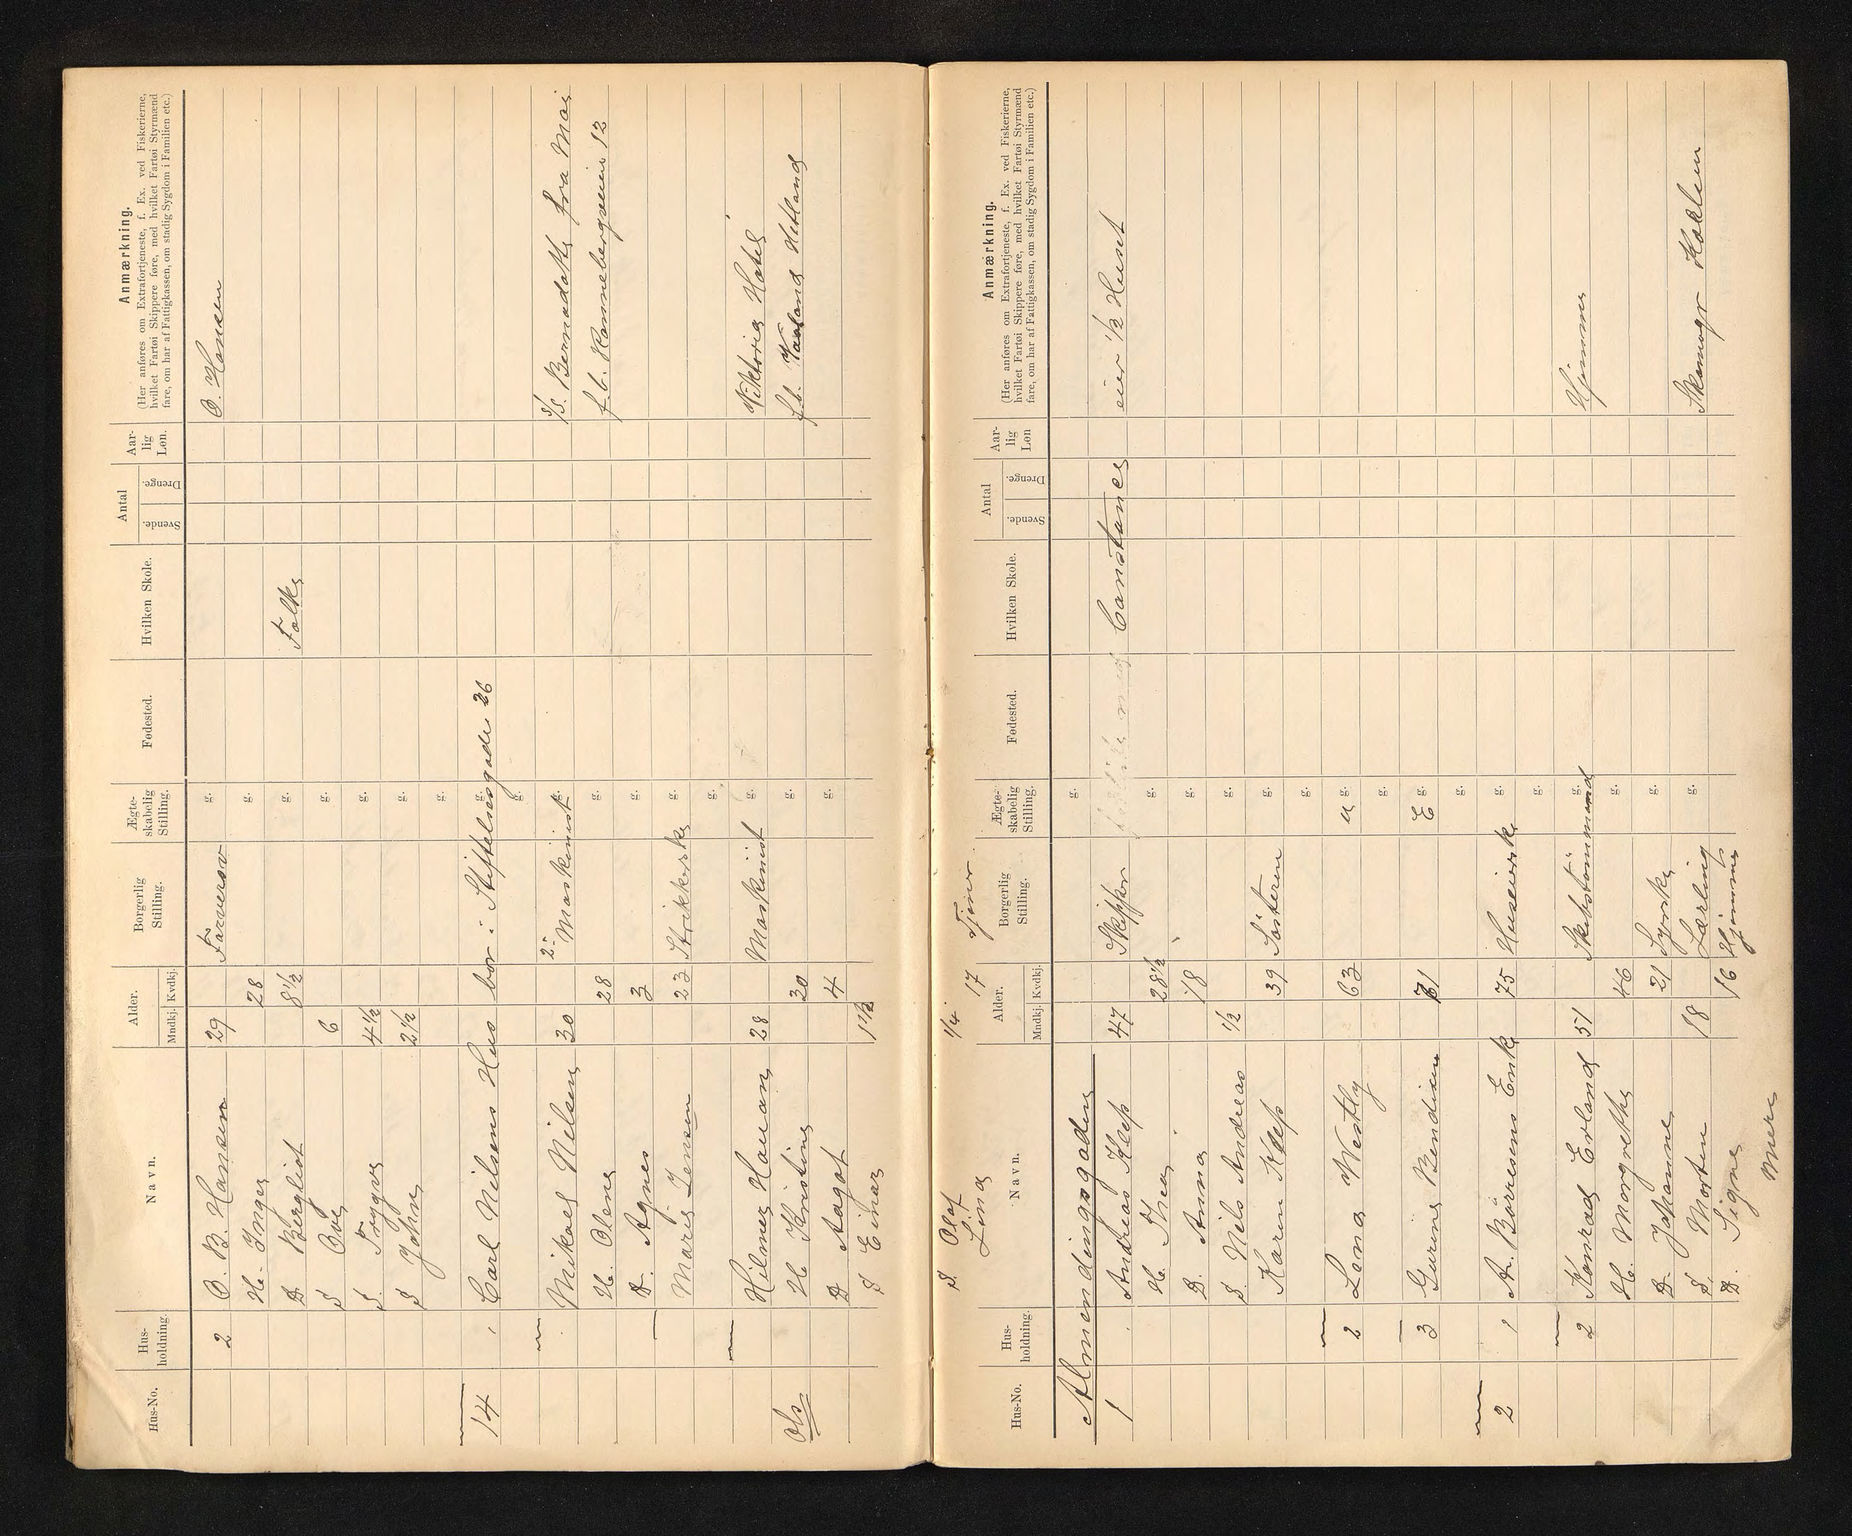 Hus-No. Hus-holdning. Navn. Alder. Mndkj. Kvdkj. Borgerlig Stilling. Ægte-skabelig Stilling. Fødested. Hvilken Skole. Antal Svende. Drenge. Aar-lig Løn. Anmærkning.
(Her anføres om Extrafortjeneste, f. Ex. ved Fiskerierne,
hvilket Fartøi Skippere føre, med hvilket Fartøi Styrmænd
fare, om har af Fattigkassen, om stadig Sygdom i Familien etc.)
2 O. B. Hansen 29 Farversv g. O. Hansen
H. Inga 28 g.
D. Bergliot 8 1/2 g. Folks
S Ove 6 g.
S. Trygve 4 1/2 g.
S John 2 1/2 g.
14 Carl Nilsens Hus bor i Stiftelsesgade 26 g.
g.
Mikael Nilsen 30 2. Maskinist g. S/S. Bernadotte fra Mai
H. Olena 28 g. f.b. Kannebergveien 12
D. Agnes 3 g.
Maria Jensen 23 Strikkerske g.
g.
Hilmar Hauan 28 Maskinist g. Viktoria Hotel
H Kristine 30 g. f.b. Vaaland Hetland
D Aagot 4 g.
S Einar 1 1/2
Ols
S. Olaf Lima 1/4 17 Tjener
Hus-No. Hus-holdning. Navn. Alder. Mndkj. Kvdkj. Borgerlig Stilling. Ægte-skabelig Stilling. Fødested. Hvilken Skole. Antal Svende. Drenge. Aar-lig Løn Anmærkning.
(Her anføres om Extrafortjeneste, f. Ex. ved Fiskerierne,
hvilket Fartøi Skippere føre, med hvilket Fartøi Styrmænd
fare, om har af Fattigkassen, om stadig Sygdom i Familien etc.)
Almendingsgaden g.
1 Andreas Klep 47 Skipper Constance eier 1/2 Huset
H. Thea 28 1/2 g.
D. Anna 18 g.
S. Nils Andreas 1/2 g.
Karen Klep 39 Søsteren g.
g.
2 Lona Westly 63 u g.
g.
3 Gurine Bendiksen 71 E g.
g.
2 1 A. Børresens Enke 75 Huseierske g.
g.
2 Konrad Erland 51 Skibstømmermand g. Hjemme
H. Margrethe 46 g.
D. Johanne 21 Syerske g.
S. Morten 18 Lærling g. Skamagr Koklun
D. Signe 16 Hjemme
Mere